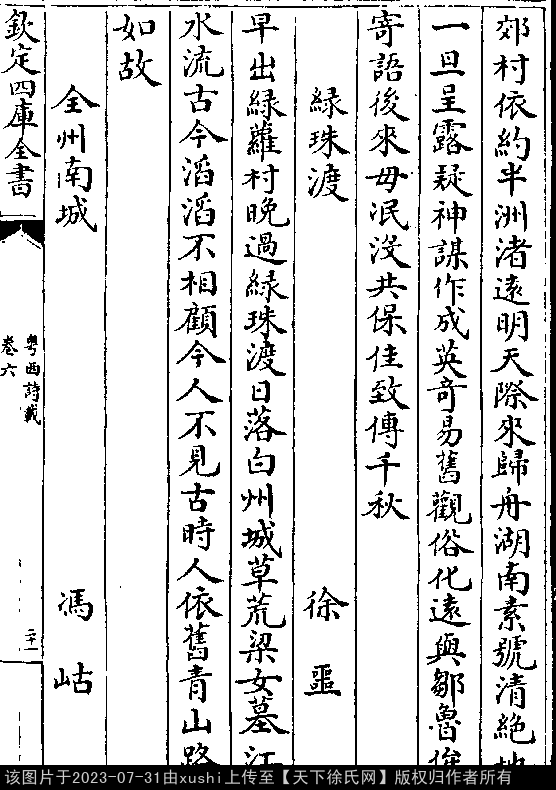 郊村依約半洲渚遠明天際來歸舟湖南素號清絶地
一旦呈露疑神謀作成英竒易舊觀俗化遠與鄒魯侔
寄語後來毋泯沒共保佳致傳千秋
綠珠渡 徐噩
早出綠蘿村晚過綠珠渡日落白州城草荒梁女墓江
水流古今滔滔不相顧今人不見古時人依舊青山路
如故
全州南城 馮岵
欽定四庫全書
粤西詩載
卷六
二十一
该图片于2023-07-31由xushi上传至【天下徐氏网】版权归作者所有